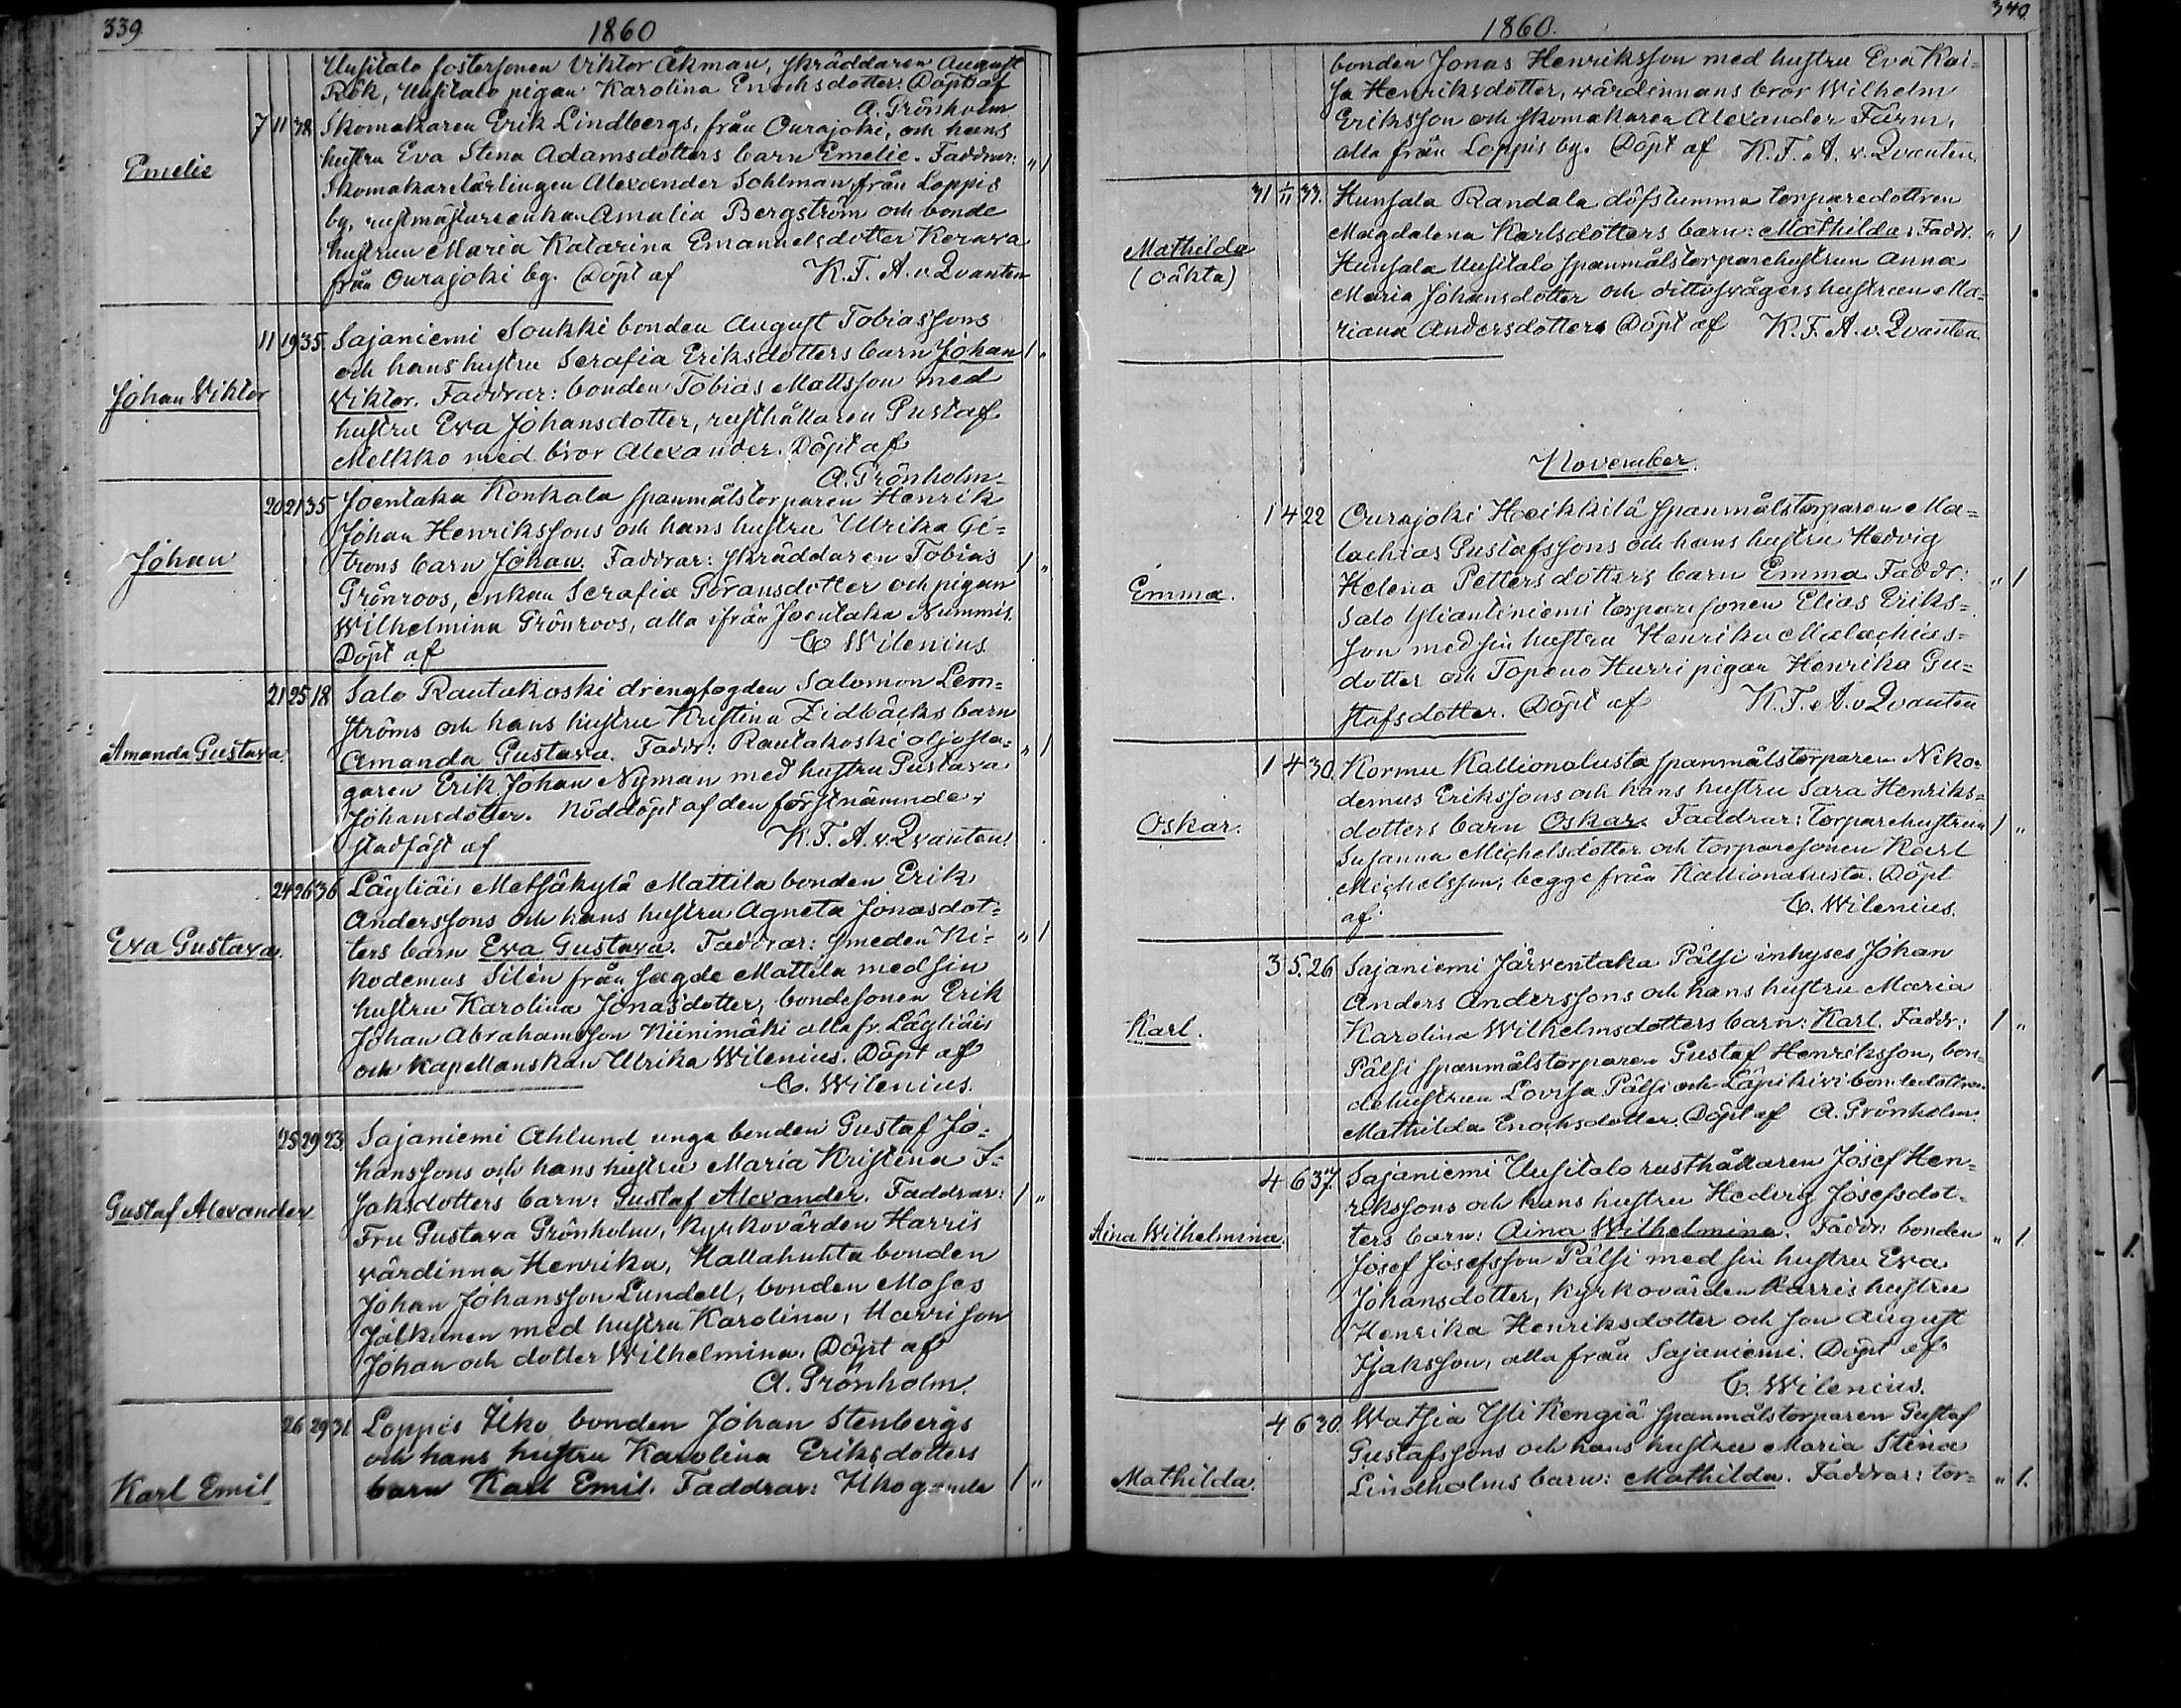 339.
1860
Uusitalo fostersonen Viktor Åkman, skräddaren August
Rök, Uusitalo pigan Karolina Enochsdotter. Döpt af
A. Grönholm
Emelie
7 11 38 Skomakaren Erik Lindbergs, från Ourajoki, och hans
hustru Eva Stina Adamsdotters barn Emelie. Faddrar: " 1
Skomakarelärlingen Alexander Sohlman, från Loppis
by, rustmästareenkan Amalia Bergström och bonde
hustrun Maria Katarina Emanuelsdotter Kerava
från Ourajoki by. Döpt af K. F. A. v. Qvanten
Johan Viktor
11 19 35. Sajaniemi Soukki bonden August Tobiassons
och hans hustru Serafia Eriksdotters barn Johan 1 "
Viktor. Faddrar: bonden Tobias Mattsson med
hustru Eva Johansdotter, rusthållaren Gustaf
Melkko med bror Alexander. Döpt af
A. Grönholm.
Johan
20 21 35 Joentaka Konkala spanmålstorparen Henrik
Johan Henrikssons och hans hustru Ulrika Ci=
trons barn Johan. Faddrar: skräddaren Tobias 1 "
Grönroos, enkan Serafia Göransdotter och pigan
Wilhelmina Grönroos, alla ifrån Joentaka Nummis.
Döpt af C Wilenius
Amanda Gustava.
21 25 18 Salo Rautakoski drengfogden Salomon Lem=
ströms och hans hustru Kristina Zidbäcks barn
Amanda Gustava. Faddr: Rautakoski oljesla= " 1
garen Erik Johan Nyman med hustru Gustava
Johansdotter. Nöddöpt af den förstnämnde;
stadfäst af K. F. A. v. Qvanten.
Eva Gustava.
24 26 36 Lägliäis Metsäkylä Mattila bonden Erik
Anderssons och hans hustru Agneta Jonasdot=
ters barn Eva Gustava. Faddrar: smeden Ni= " 1
kodemus Silén från sagde Mattila med sin
hustru Karolina Jonasdotter, bondesonen Erik
Johan Abrahamsson Niinimäki alla fr. Lägliäis
och kapellanskan Ulrika Wilenius. Döpt af
C. Wilenius.
Gustaf Alexander
25 29 23. Sajaniemi Ahlund unga bonden Gustaf Jo=
hanssons och hans hustru Maria Kristina I=
saksdotters barn: Gustaf Alexander. Faddrar: 1 "
Fru Gustava Grönholm, kyrkovärden Harris
värdinna Henrika, Hallahuhta bonden
Johan Johansson Lundell, bonden Moses
Jalkanen med hustru Karolina, Harri son
Johan och dotter Wilhelmina. Döpt af
A. Grönholm.
Karl Emil
26 29 31 Loppis Ilko bonden Johan Stenbergs
och hans hustru Karolina Eriksdotters
barn Karl Emil. Faddrar: Ilko gamla 1 "
340.
1860.
bonden Jonas Henriksson med hustru Eva Kai=
sa Henriksdotter, värdinnans bror Wilhelm
Eriksson och skomakaren Alexander Färm,
alla från Loppis by. Döpt af K. F. A. v. Qvanten.
Mathilda
(oäkta)
31 1/11 33. Hunsala Randala döfstumma torparedottren
Magdalena Karlsdotters barn: Mathilda. Faddr. " 1
Hunsala Uusitalo spanmålstorparehustrun Anna
Maria Johansdotter och ditto svågers hustrun Ma=
riana Andersdotter. Döpt af K. F. A. v. Qvanten.
November.
Emma.
1 4 22 Ourajoki Heikkilä spanmålstorparen Ma=
lachias Gustafssons och hans hustru Hedvig
Helena Pettersdotters barn Emma. Faddr: " 1
Salo Yliantiniemi torparesonen Elias Eriks=
son med sin hustru Henrika Malachias=
dotter och Topeno Hurri pigan Henrika Gu=
stafsdotter. Döpt af K. F. A. v Qvanten
Oskar.
1 4 30. Kormu Kallionalusta spanmålstorparen Niko=
demus Erikssons och hans hustru Sara Henriks=
dotters barn Oskar. Faddrar: Torparehustrun 1 "
Susanna Michelsdotter och torparesonen Karl
Michelsson, begge från Kallionalusta. Döpt
af C. Wilenius.
Karl.
3 5. 26 Sajaniemi Järventaka Pälsi inhyses Johan
Anders Anderssons och hans hustru Maria
Karolina Wilhelmsdotters barn: Karl. Faddr: 1 "
Pälsi spanmålstorparen Gustaf Henriksson, bon=
dehustrun Lovisa Pälsi och Läpikivi bondedottren
Mathilda Enochsdotter. Döpt af A. Grönholm.
Aina Wilhelmina.
4 6 37. Sajaniemi Uusitalo rusthållaren Josef Hen=
rikssons och hans hustru Hedvig Josefsdot=
ters barn: Aina Wilhelmina. Faddr: bonden " 1.
Josef Josefsson Pälsi med sin hustru Eva
Johansdotter, kyrkovärden Harris hustru
Henrika Henriksdotter och son August
Isaksson, alla från Sajaniemi. Döpt af
C. Wilenius.
Mathilda.
4 6 30. Watsia Yli Kengiä spanmålstorparen Gustaf
Gustafssons och hans hustru Maria Stina
Lindholms barn: Mathilda. Faddrar: tor= " 1.